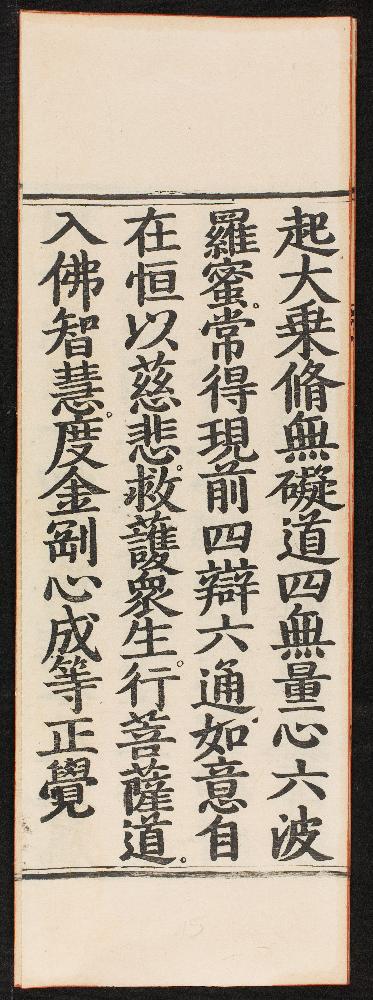 起大乗脩無礙道四無量心六波
羅蜜。常得現前四辯六通。如意自
在恒以慈悲。救護衆生。行菩薩道。
入佛智慧。度金剛心成等正覺
15